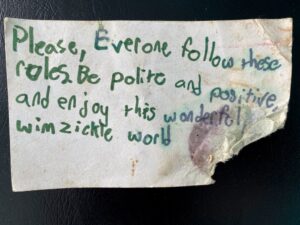 Please, Everone follow these
roles. Be polite and positive,
and enjoy this wonderful
wimzickle world